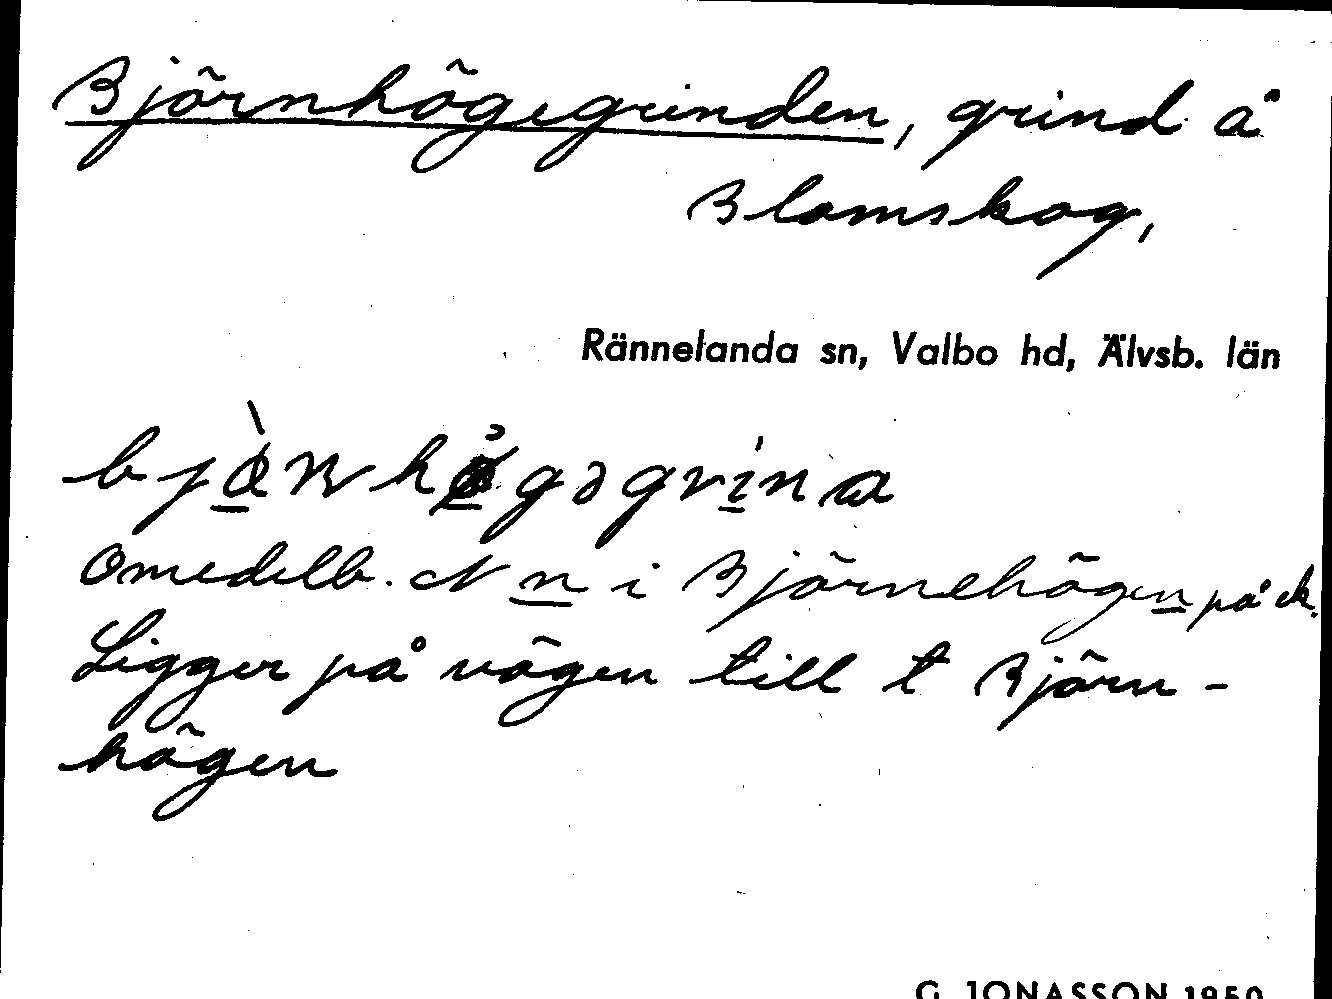 Björnhögegrinden, grind å
Blomskog,
Rännelanda sn, Valbo hd, Älvsb. län
omedelb. N n i Björnehögen på ek.
Ligger på vägen till t Björn-
högen
G. JONASSON 1950